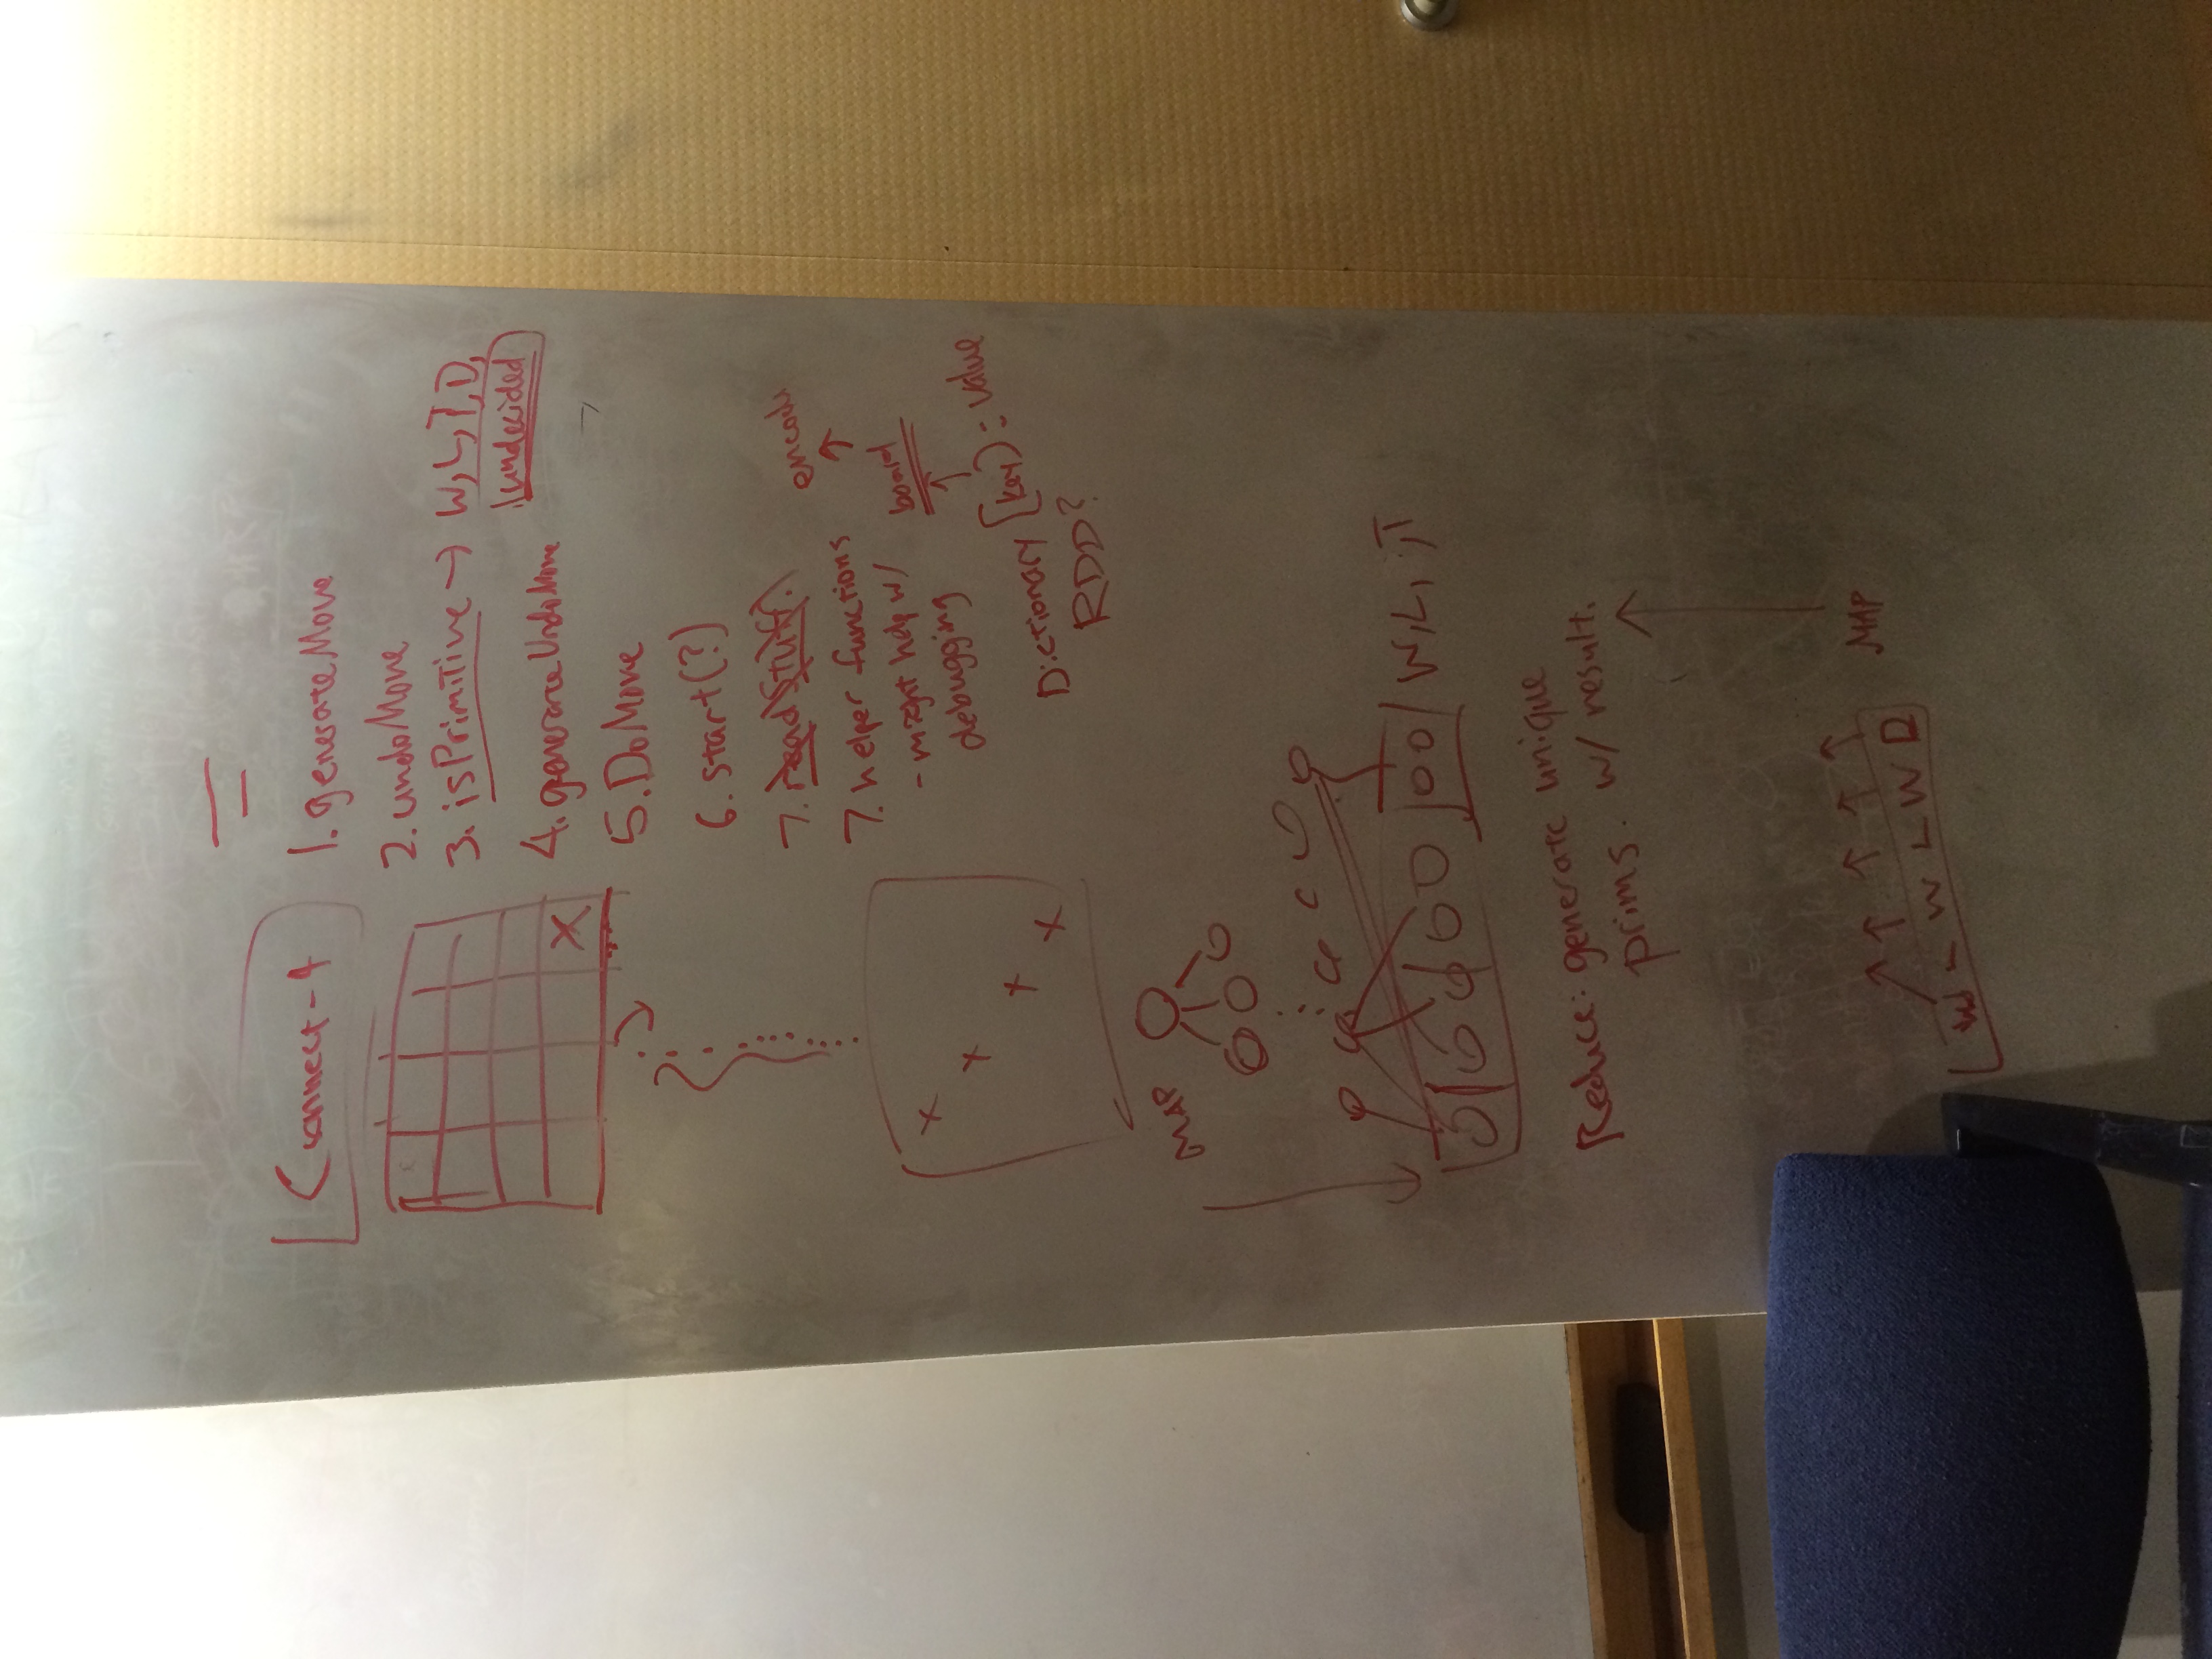 Connect-4
1. generateMove
2. undoMove
3. isPrimitive → W, L, T, D,
undecided
4. generateUndoMove
5. DoMove
6. start(?)
7. read stuff.
7. helper functions
- might help w/
debugging
encode
board
Dictionary [key] = value
RDD?
X
X
X
X
X
MAP
W, L, , T
Reduce: generate unique
prims. w/ result.
MAP
W L W L W D